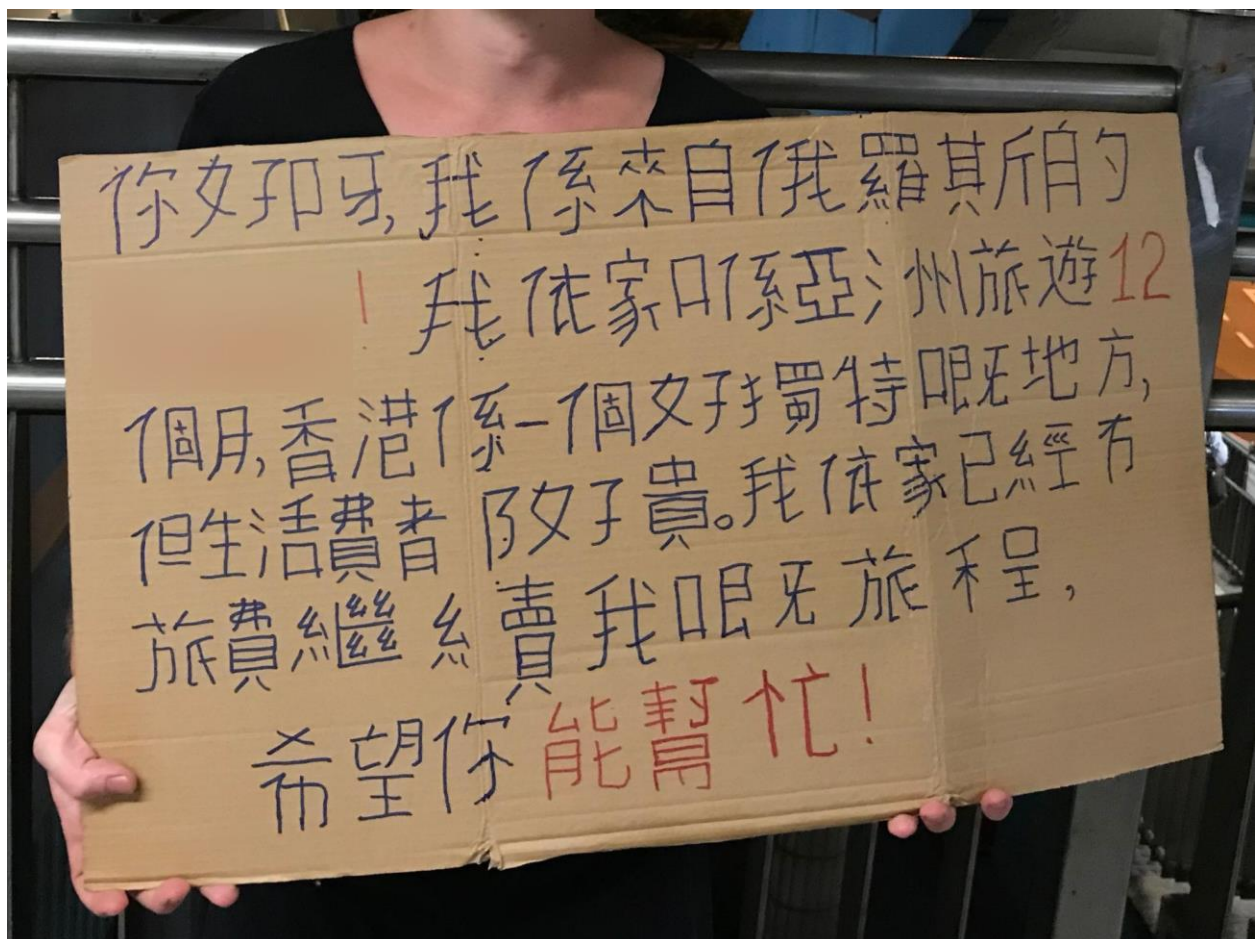 你好呀,我係來自俄羅斯的
! 我依家喺亞洲旅遊12
個月,香港係一個好獨特嘅地方,
但生活費都好貴。我依家已經冇
旅費繼續我嘅旅程,
希望你能幫忙!